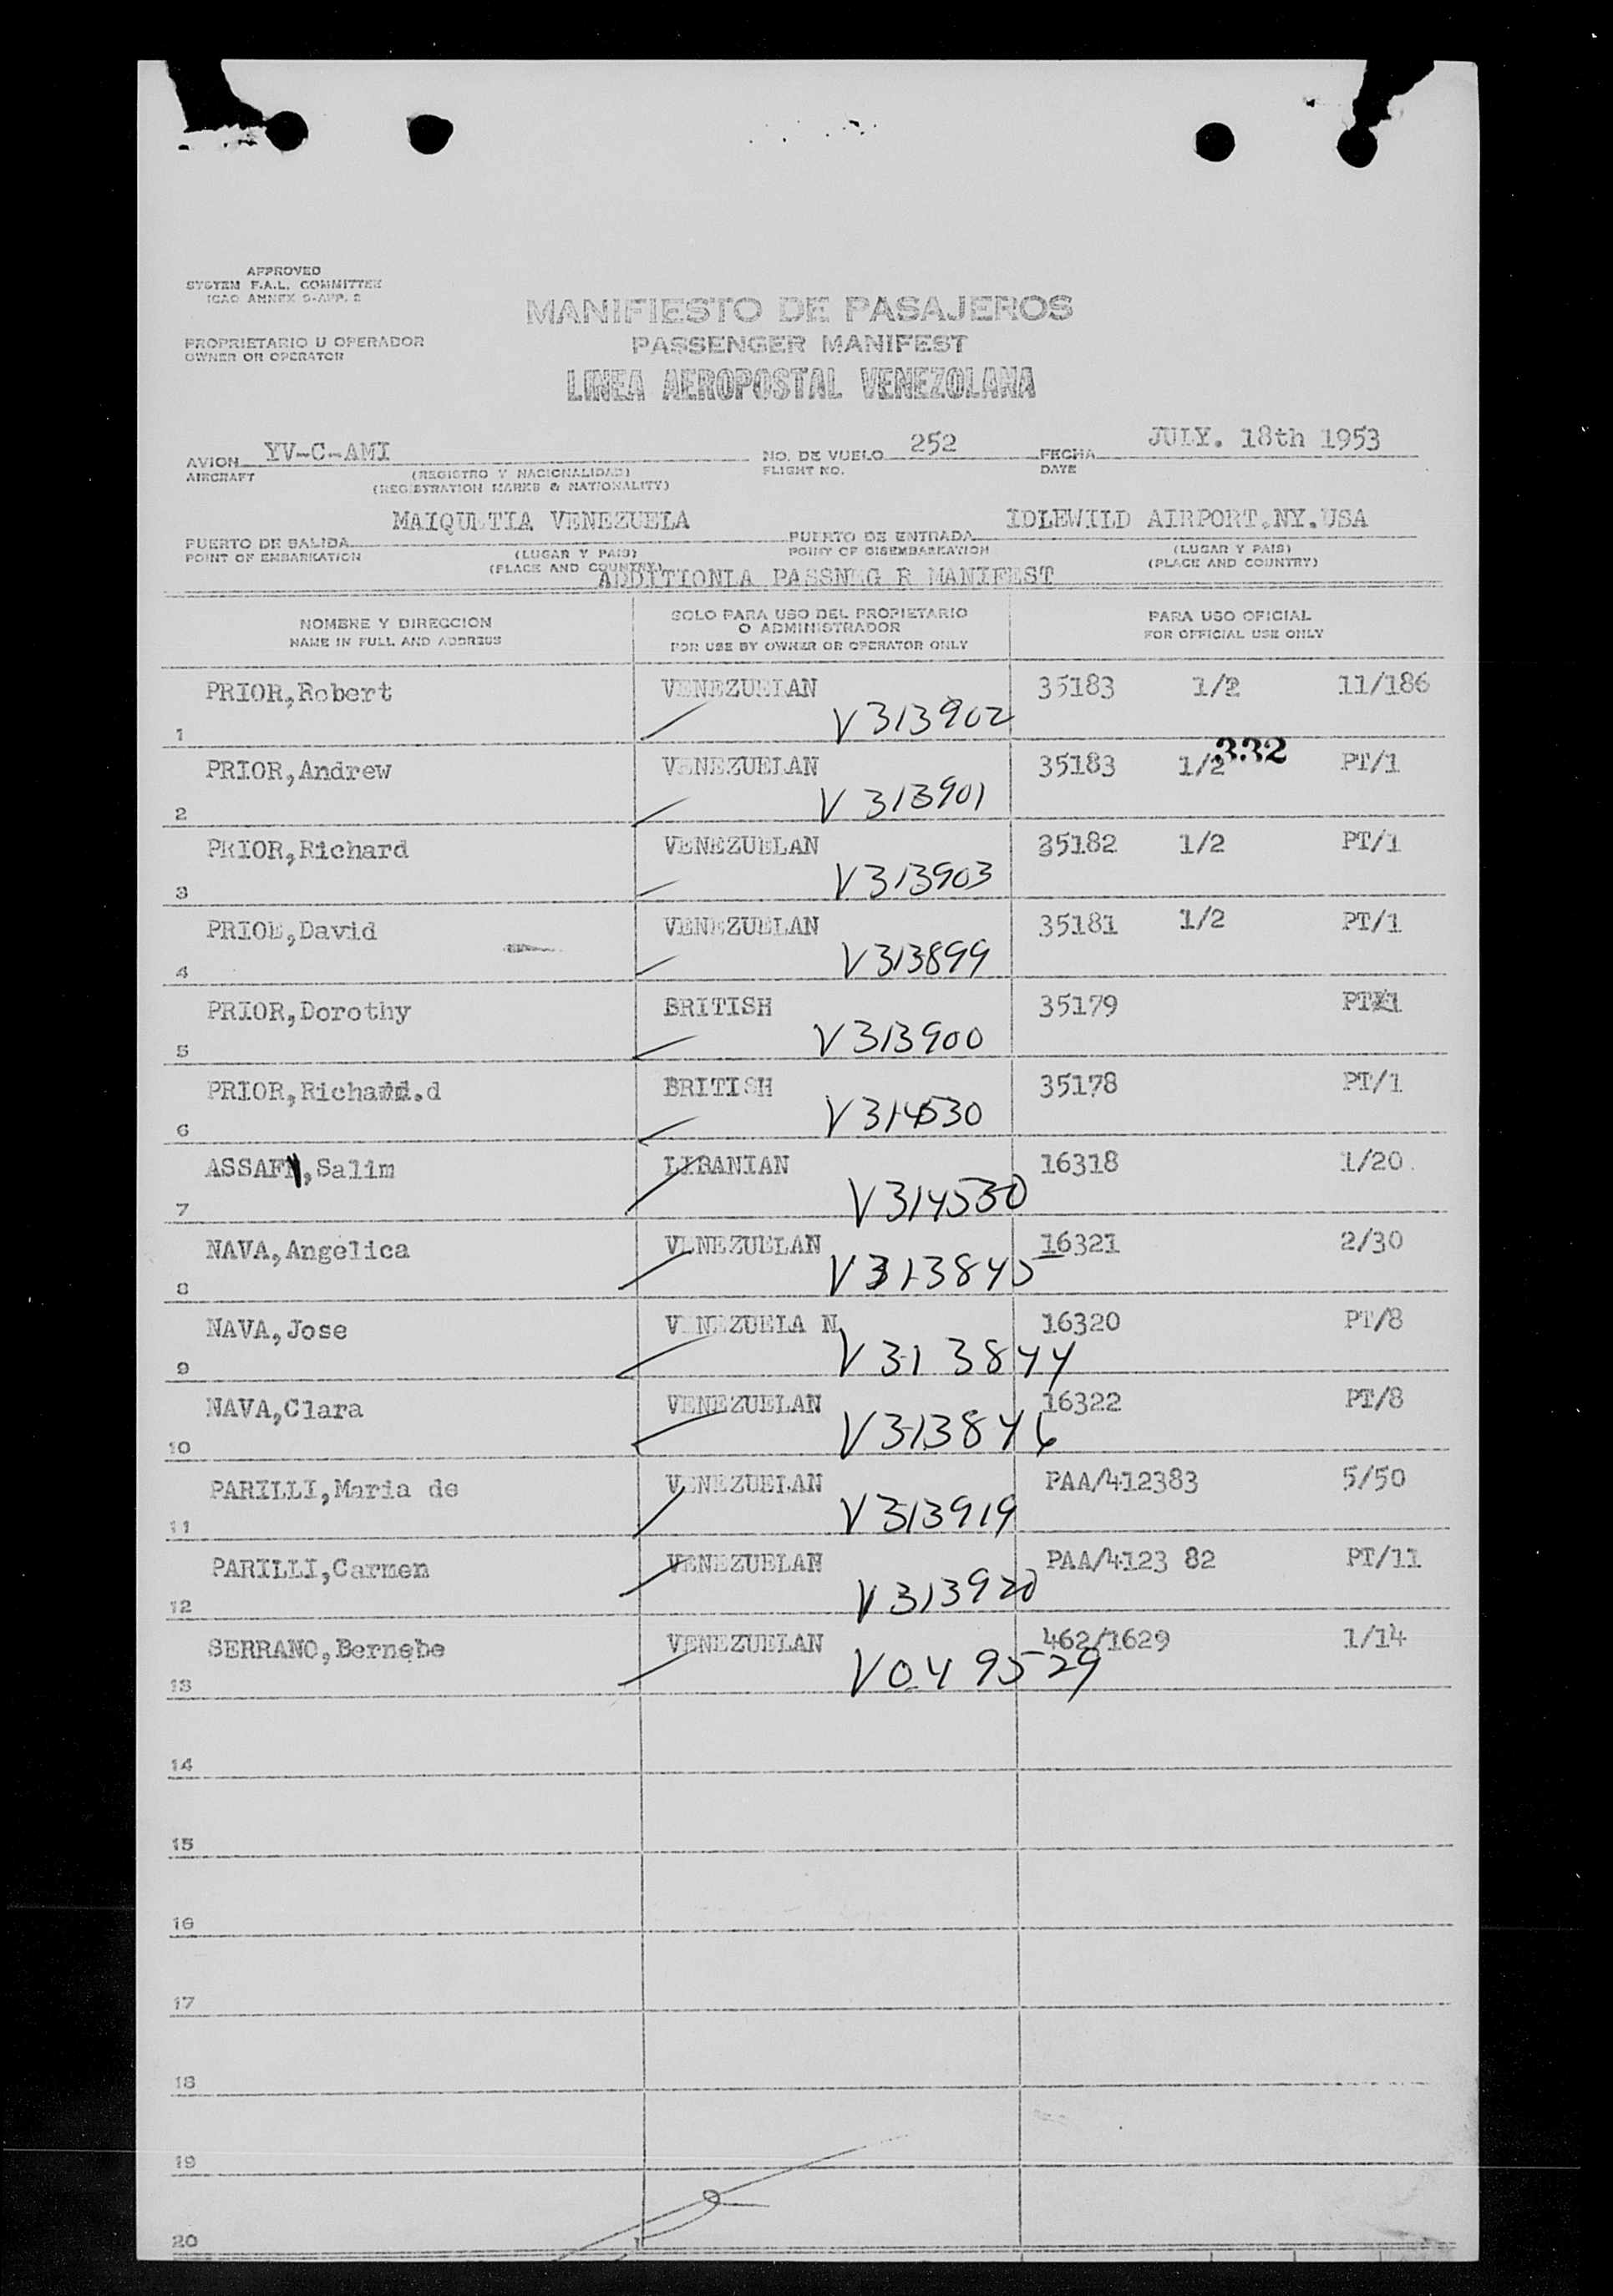 APPROVED
SYSTEM F.A.L. COMMITTEE
ICAO ANNEX 9-APP. 2
MANIFIESTO DE PASAJEROS
PROPRIETARIO U OPERADOR
OWNER OR OPERATOR
PASSENGER MANIFEST
LINEA AEROPOSTAL VENEZOLANA
AVION YV-C-AMI NO. DE VUELO 252 FECHA JULY. 18th 1953
AIRCRAFT (REGISTRO Y NACIONALIDAD) FLIGHT NO. DATE
(REGISTRATION MARKS & NATIONALITY)
MAIQUETIA VENEZUELA IDLEWILD AIRPORT.NY.USA
PUERTO DE SALIDA PUERTO DE ENTRADA
POINT OF EMBARKATION (LUGAR Y PAIS) POINT OF DISEMBARKATION (LUGAR Y PAIS)
(PLACE AND COUNTRY) (PLACE AND COUNTRY)
ADDITIONLA PASSNEG R MANIFEST
NOMBRE Y DIRECCION SOLO PARA USO DEL PROPIETARIO PARA USO OFICIAL
O ADMINISTRADOR
NAME IN FULL AND ADDRESS FOR USE BY OWNER OR OPERATOR ONLY FOR OFFICIAL USE ONLY
PRIOR,Robert VENEZUELAN 35183 1/2 11/186
1 V313902
332
PRIOR,Andrew VENEZUELAN 35183 1/2 PT/1
2 V313901
PRIOR,Richard VENEZUELAN 35182 1/2 PT/1
3 V313903
PRIOE,David VENEZUELAN 35181 1/2 PT/1
4 V313899
PRIOR,Dorothy BRITISH 35179 PT/1
5 V313900
PRIOR,Richard.d BRITISH 35178 PT/1
6 V314530
ASSAF,Salim LIBANIAN 16318 1/20
7 V314530
NAVA,Angelica VENEZUELAN 16321 2/30
8 V313845
NAVA,Jose VENEZUELA N 16320 PT/8
9 V313844
NAVA,Clara VENEZUELAN 16322 PT/8
10 V313846
PARILLI,Maria de VENEZUELAN PAA/412383 5/50
11 V313919
PARILLI,Carmen VENEZUELAN PAA/4123 82 PT/11
12 V313920
SERRANO,Bernebe VENEZUELAN 462/1629 1/14
13 V049529
14
15
16
17
18
19
20